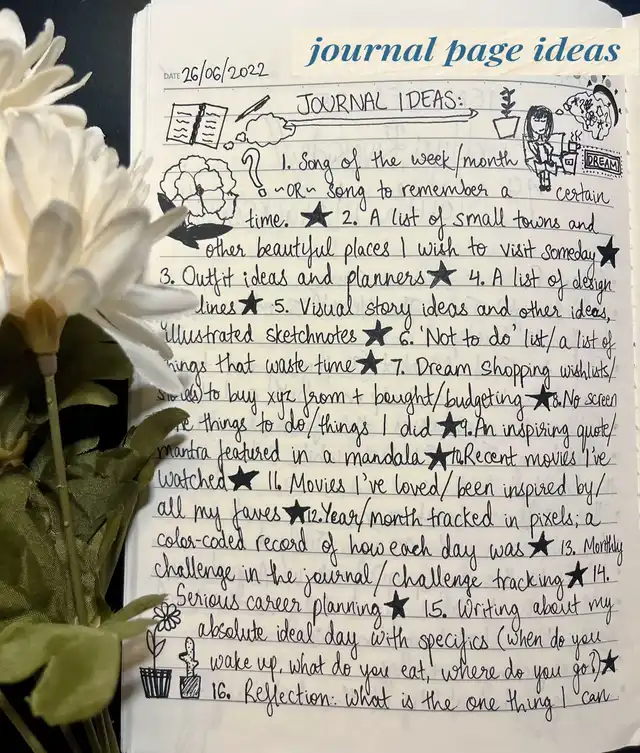 journal page ideas
DATE 26/06/2022
JOURNAL IDEAS:
1. Song of the week/month
~OR~ song to remember a certain
time. ★ 2. A list of small towns and
other beautiful places I wish to visit someday ★
3. Outfit ideas and planners ★ 4. A list of design
lines ★ 5. Visual story ideas and other ideas,
illustrated sketchnotes ★ 6. 'Not to do' list/a list of
things that waste time ★ 7. Dream shopping wishlists/
to buy xyz from + bought/budgeting ★ 8. No screen
things to do/things I did ★ 9. An inspiring quote/
mantra featured in a mandala ★ 10. Recent movies I've
watched ★ 11. Movies I've loved/been inspired by/
all my faves ★ 12. Year/month tracked in pixels; a
color-coded record of how each day was ★ 13. Monthly
challenge in the journal/challenge tracking ★ 14.
Serious career planning ★ 15. Writing about my
absolute ideal day with specifics (when do you
wake up, what do you eat, where do you go?) ★
16. Reflection: what is the one thing I can
DREAM